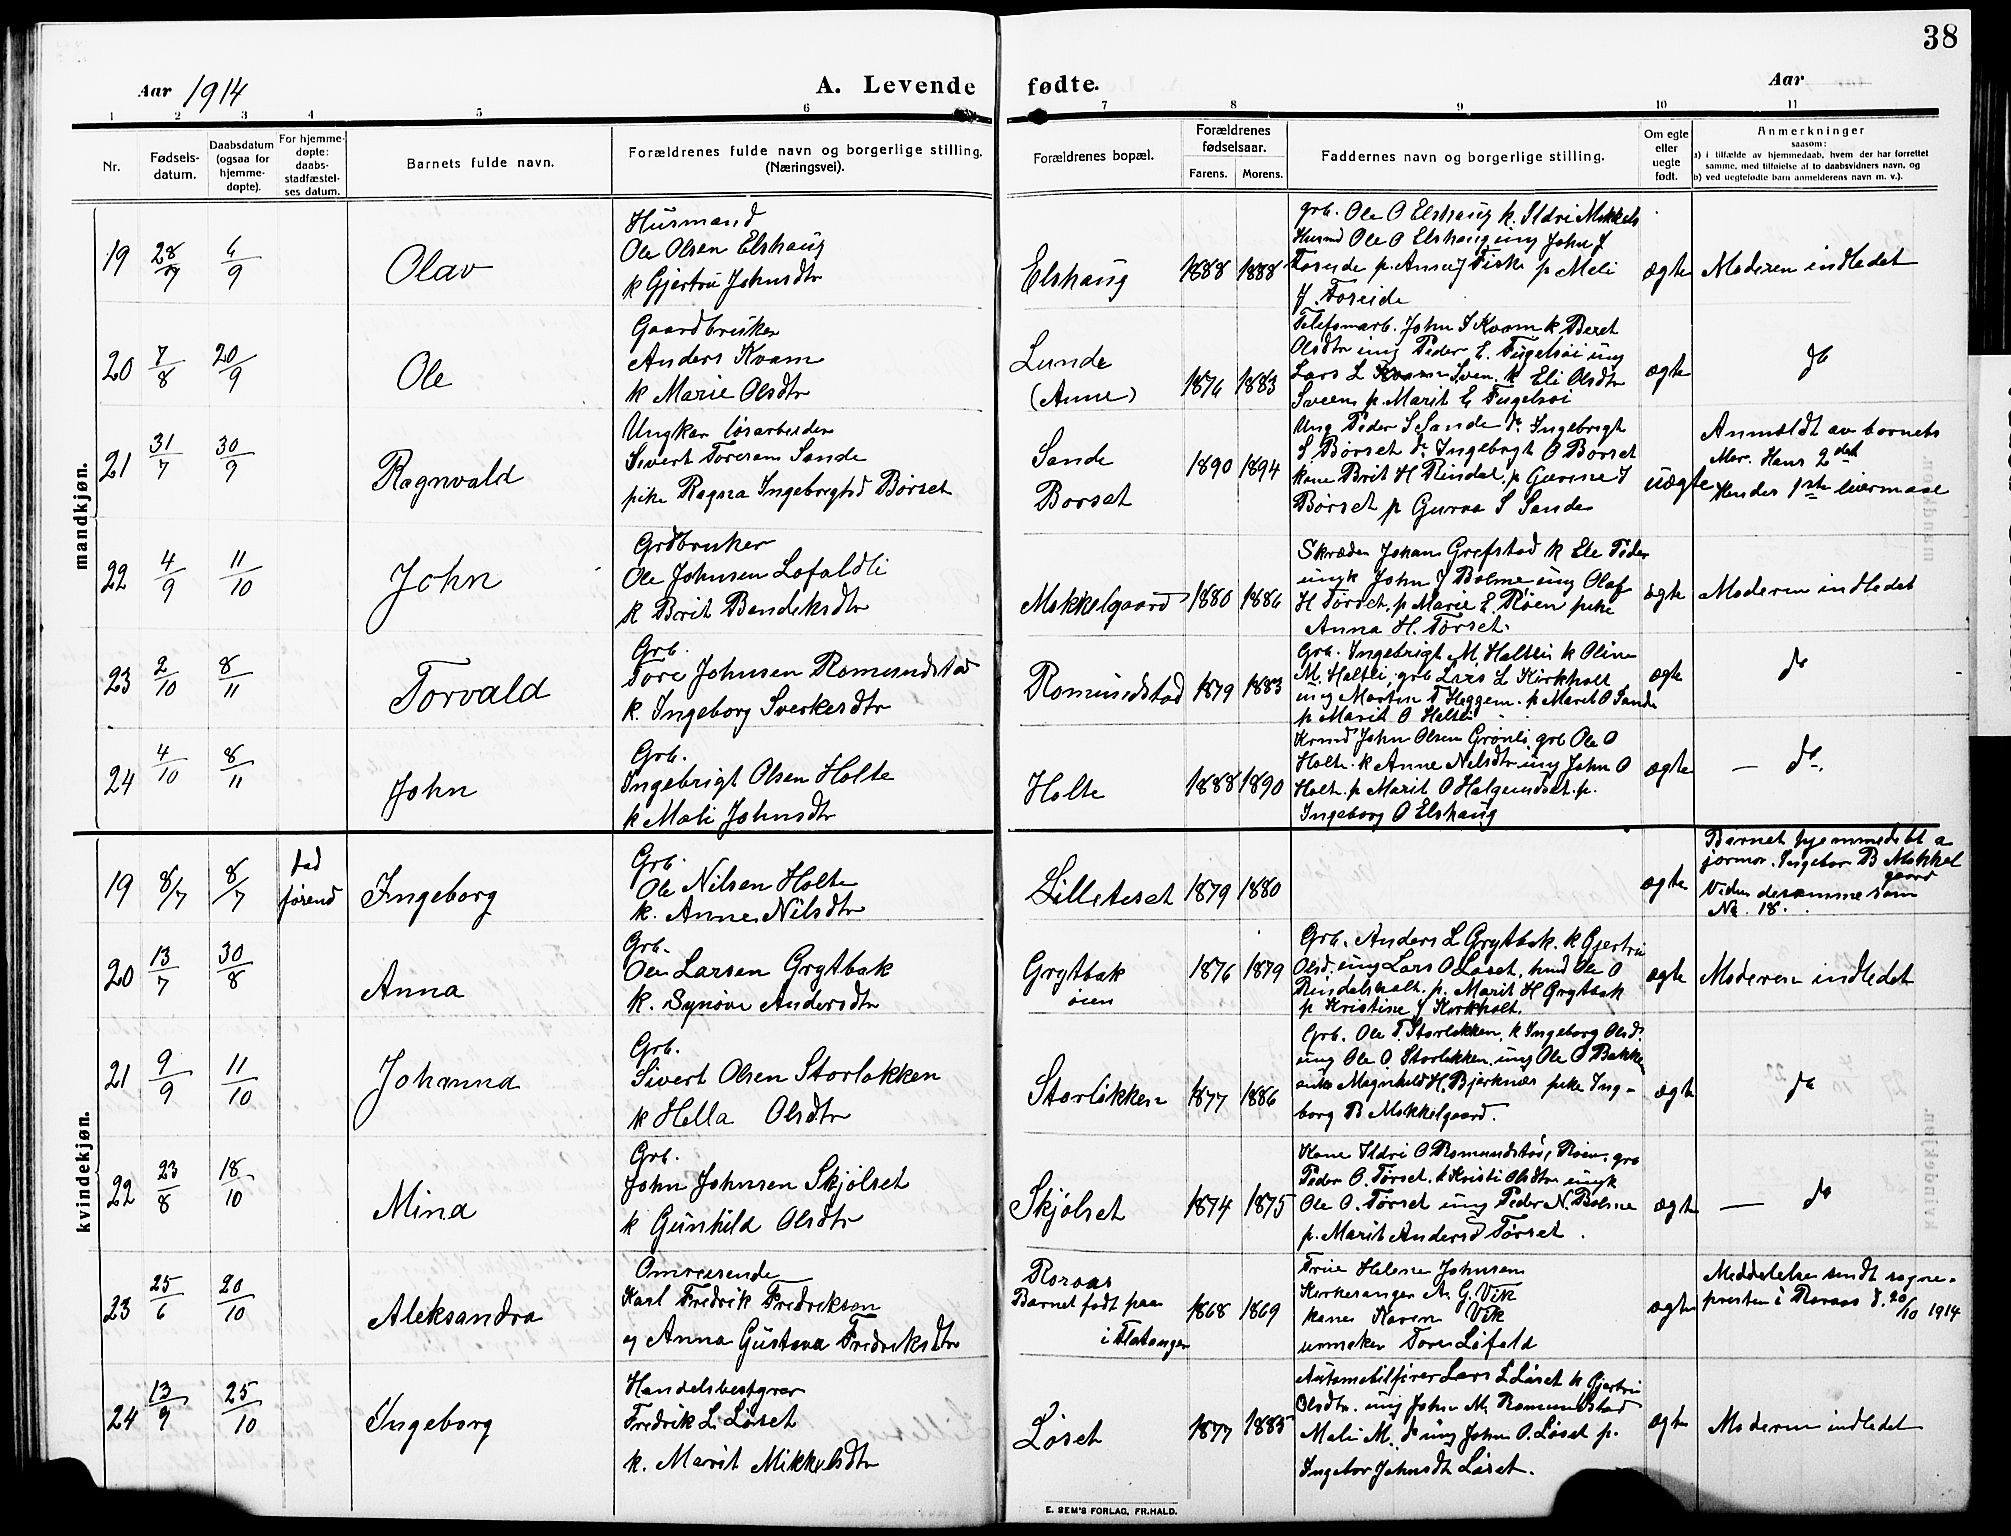 38
Aar 1914
A. Levende
fødte.
Aar
1 2 3 4 5 6 7 8 9 10 11
Nr.
Fødsels-
datum.
Daabsdatum
(ogsaa for
hjemme-
døpte).
For hjemme-
døpte:
daabs-
stadfæstel-
ses datum.
Barnets fulde navn.
Forældrenes fulde navn og borgerlige stilling.
(Næringsvei).
Forældrenes bopæl.
Forældrenes
fødselsaar.
Farens. Morens.
Faddernes navn og borgerlige stilling.
Om egte
eller
uegte
født.
Anmerkninger
saasom:
a) i tilfælde av hjemmedaab, hvem der har forrettet
samme, med tilføielse af to daabsvidners navn, og
b) ved uegtefødte barn anmelderens navn m. v.).
mandkjøn.
19 28/7 6/9 Olav
Husmand
Ole Olsen Elshaug
k Gjertru Johnsdtr
Elshaug 1888 1888
grb. Ole O Elshaug k. Ildri Mikkels
Husmd Ole O Elshaug ung John J
Foreide p. Anne J Fiske p Mali
J. Foreide
ægte Moderen indledet
20 7/8 20/9 Ole
Gaardbruker
Anders Kvam
k Marie Olsdtr
Lunde
(Aune)
1876 1883
Telefonarb. John I Kvam k Beret
Olsdtr ung Peder E. Fugelsøi ung
Lars L Sven. k Eli Olsdtr
Sveen p. Marit E Fugelsøi
ægte do
21 31/7 30/9 Ragnvald
Ungkar løsarbeider
Sivert Toresen Sande
pike Ragna Ingebrigtsd Børset
Sande
Børset
1890 1894
Ung Peder S Sande do Ingebrigt
S. Børset do Ingebrigt O Børset
kone Brit H Rindal, p I
Børset p Gurra S Sande
uægte
Anmældt av barnets
Mor. Hans 2det
Hendes 1ste leiermaal
22 4/9 11/10 John
Grdbruker
Ole Johnsen Løfaldli
k Brit Bendiksdtr
Mikkelgaard 1880 1886
Skræder Johan Grefstad k Ele Peder
ungk John J Bolme ung Olaf
H Tørset, p Marie E. Røen pike
Anna H. Tørset.
ægte Moderen indledet
23 2/10 8/11 Torvald
Grb.
Tore Johnsen Romundstad
k. Ingeborg Sverkesdtr
Romundstad 1879 1883
Grb. Ingebrigt M. Haltli k Oline
M. Haltli, grb Lars L Kirkholt
ung Morten T Heggem. p Marit O Sande
p Marit O Haltli
ægte do
24 4/10 8/11 John
Grb.
Ingebrigt Olsen Holte
k Mali Johnsdtr
Holte 1888 1890
John Olsen Grønli grb Ole O
Holte. k Anne Nilsdtr ung John O
Holt. p Marit O Halgundset. p.
Ingeborg O Elshaug
ægte — do.
kvindekjøn.
19 8/7 8/7 Ingeborg
Grb.
Ole Nilsen Holte
k. Anne Nilsdtr
Lilleteset 1879 1880
ægte
Barnet hjemmedøbt a
jormor. Ingebor B Mikkel
gaard
Vidner desamme som
No. 18.
20 13/7 30/8 Anna
Grb.
Ole Larsen Grytbak
k. Synøve Andersdtr
Grytbak
øien
1876 1879
Grb. Anders L Grytbak. k Gjertru
Olsd. ung Lars O Løset, hmd Ole O
Rindalsholt. p. Marit H Grytbak
p Kristine J Kirkholt.
ægte Moderen indledet
21 9/9 11/10 Johanna
Grb.
Sivert Olsen Storløkken
k Hella Olsdtr
Storløkken 1877 1886
Grb. Ole T. Storløkken, k Ingeborg Olsd.
ung Ole O Storløkken. ung Ole O Bakken
enke Magnhild H. Bjerknæs pike Ing-
borg B Mikkelgaard.
ægte do
22 23/8 18/10 Mina
Grb.
John Johnsen Skjølset
k Gunhild Olsdtr
Skjølset 1874 1875
Kone Ildri O Romundstad, Røen, grb
Peder O. Tørset, k Kristi Olsdtr ungk
Ole O. Tørset ung Peder N. Bolme
p. Marit Andersd Tørset.
ægte — do
23 25/6 20/10 Aleksandra
Omreisende
Karl Fredrik Fredriksen
og Anna Gustava Fredriksdtr
Roraas
Barnet født paa
i Flatanger
1868 1869
Frue Helene Johnsen
Kirkesanger A. G. Vik
kone Karen Vik
urmaker Tore Løfald
ægte
Meddelelse sendt sogne-
presten i Roraas d. 20/10 1914
24 13/9 25/10 Ingeborg
Handelsbestyrer
Fredrik L. Løset
k. Marit Mikkelsdtr
Løset 1877 1885
Automobilfører Lars L Løset k Gjertru
Olsdtr. ung John M. Romundstad
Mali M. do ung John O. Løset p.
Ingebor Johnsdt Løset.
ægte Moderen indledet
E. SEM'S FORLAG, FR.HALD.